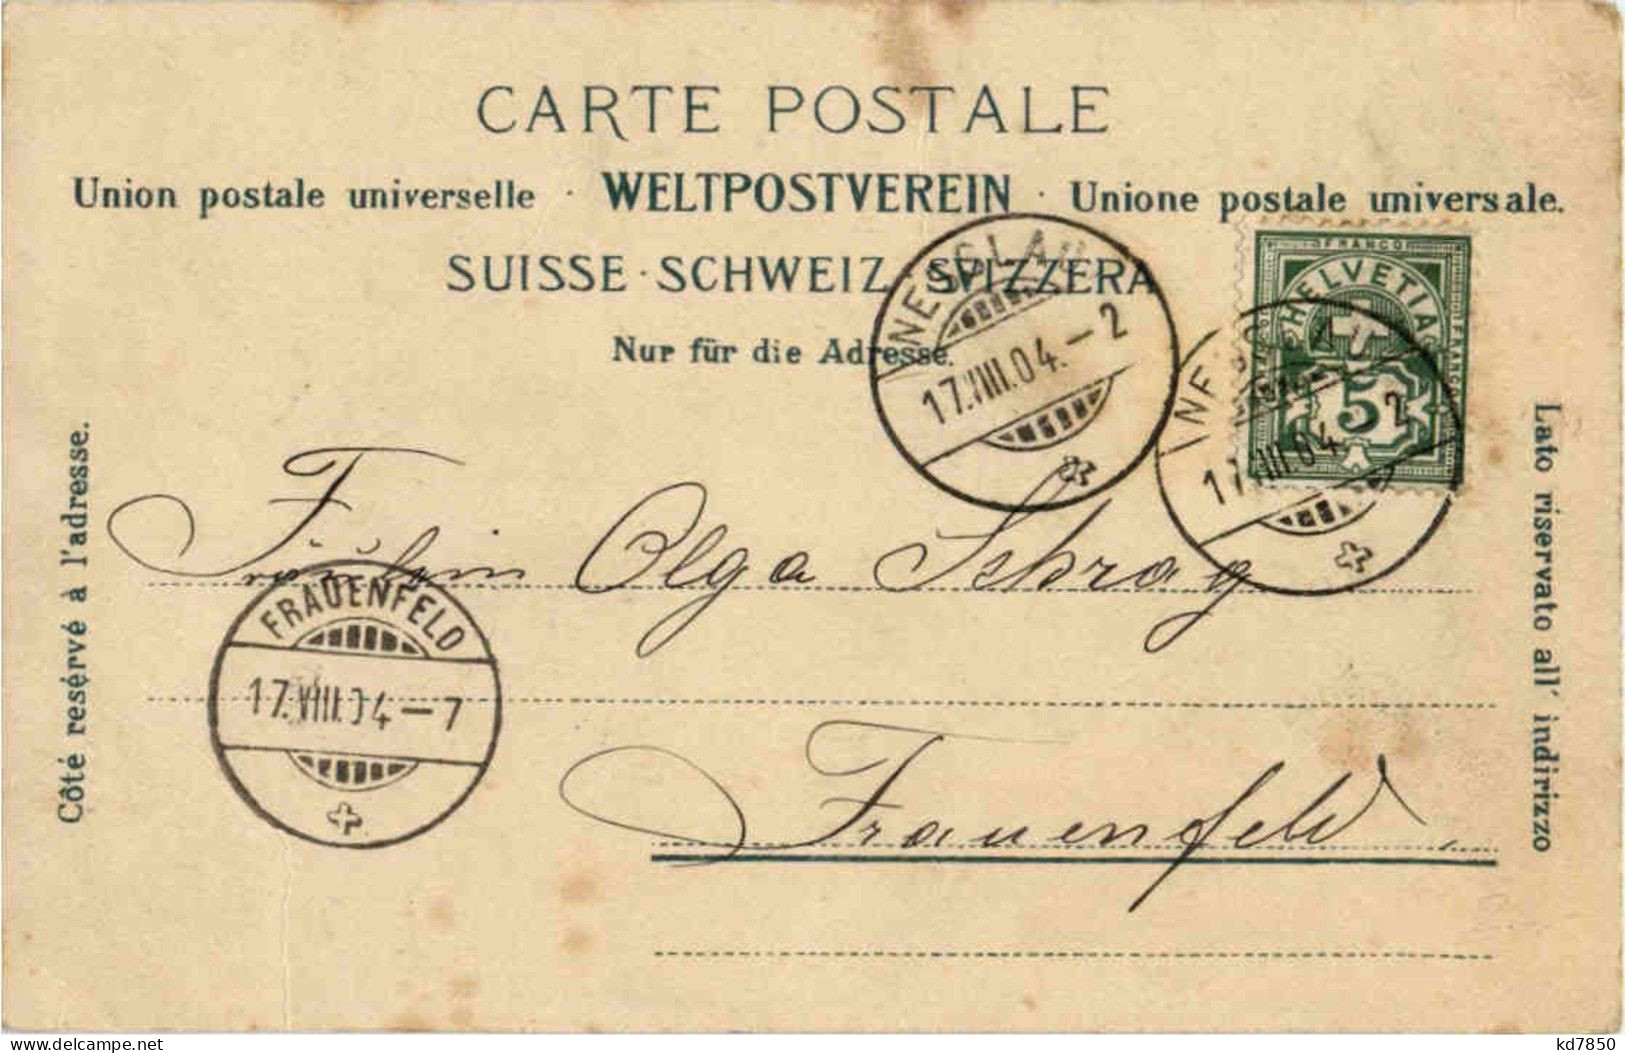 CARTE POSTALE
Union postale universelle · WELTPOSTVEREIN · Unione postale universale.
SUISSE · SCHWEIZ SVIZZERA
Nur für die Adresse.
FRANCO
HELVETIA
FRANCO
5
17.VIII.04.-2
17.VIII.04 2
Côté resérvé à l'adresse.
Lato riservato all' indirizzo
Fräulein Olga Schrag
FRAUENFELD
17.VIII.04-7
Frauenfeld.
kd7850